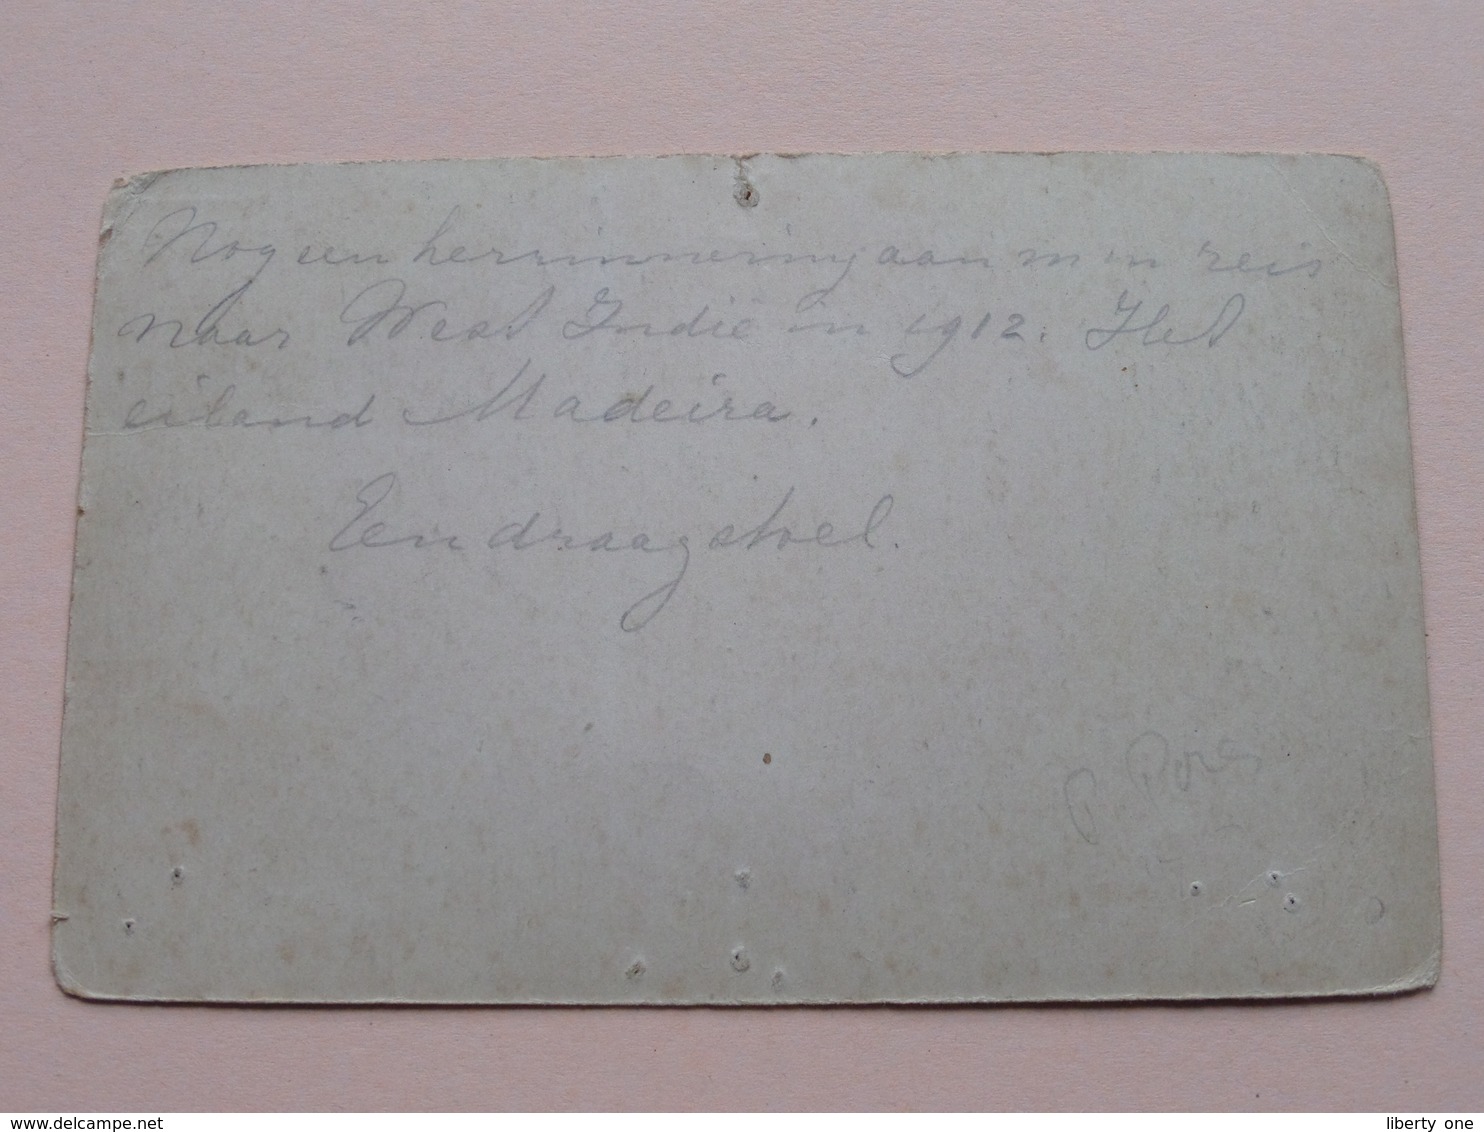 Nog een herrinnering aan m'n reis
naar West Indië in 1912. Het
eiland Madeira.
Een draagstoel.
delcampe.net
liberty one